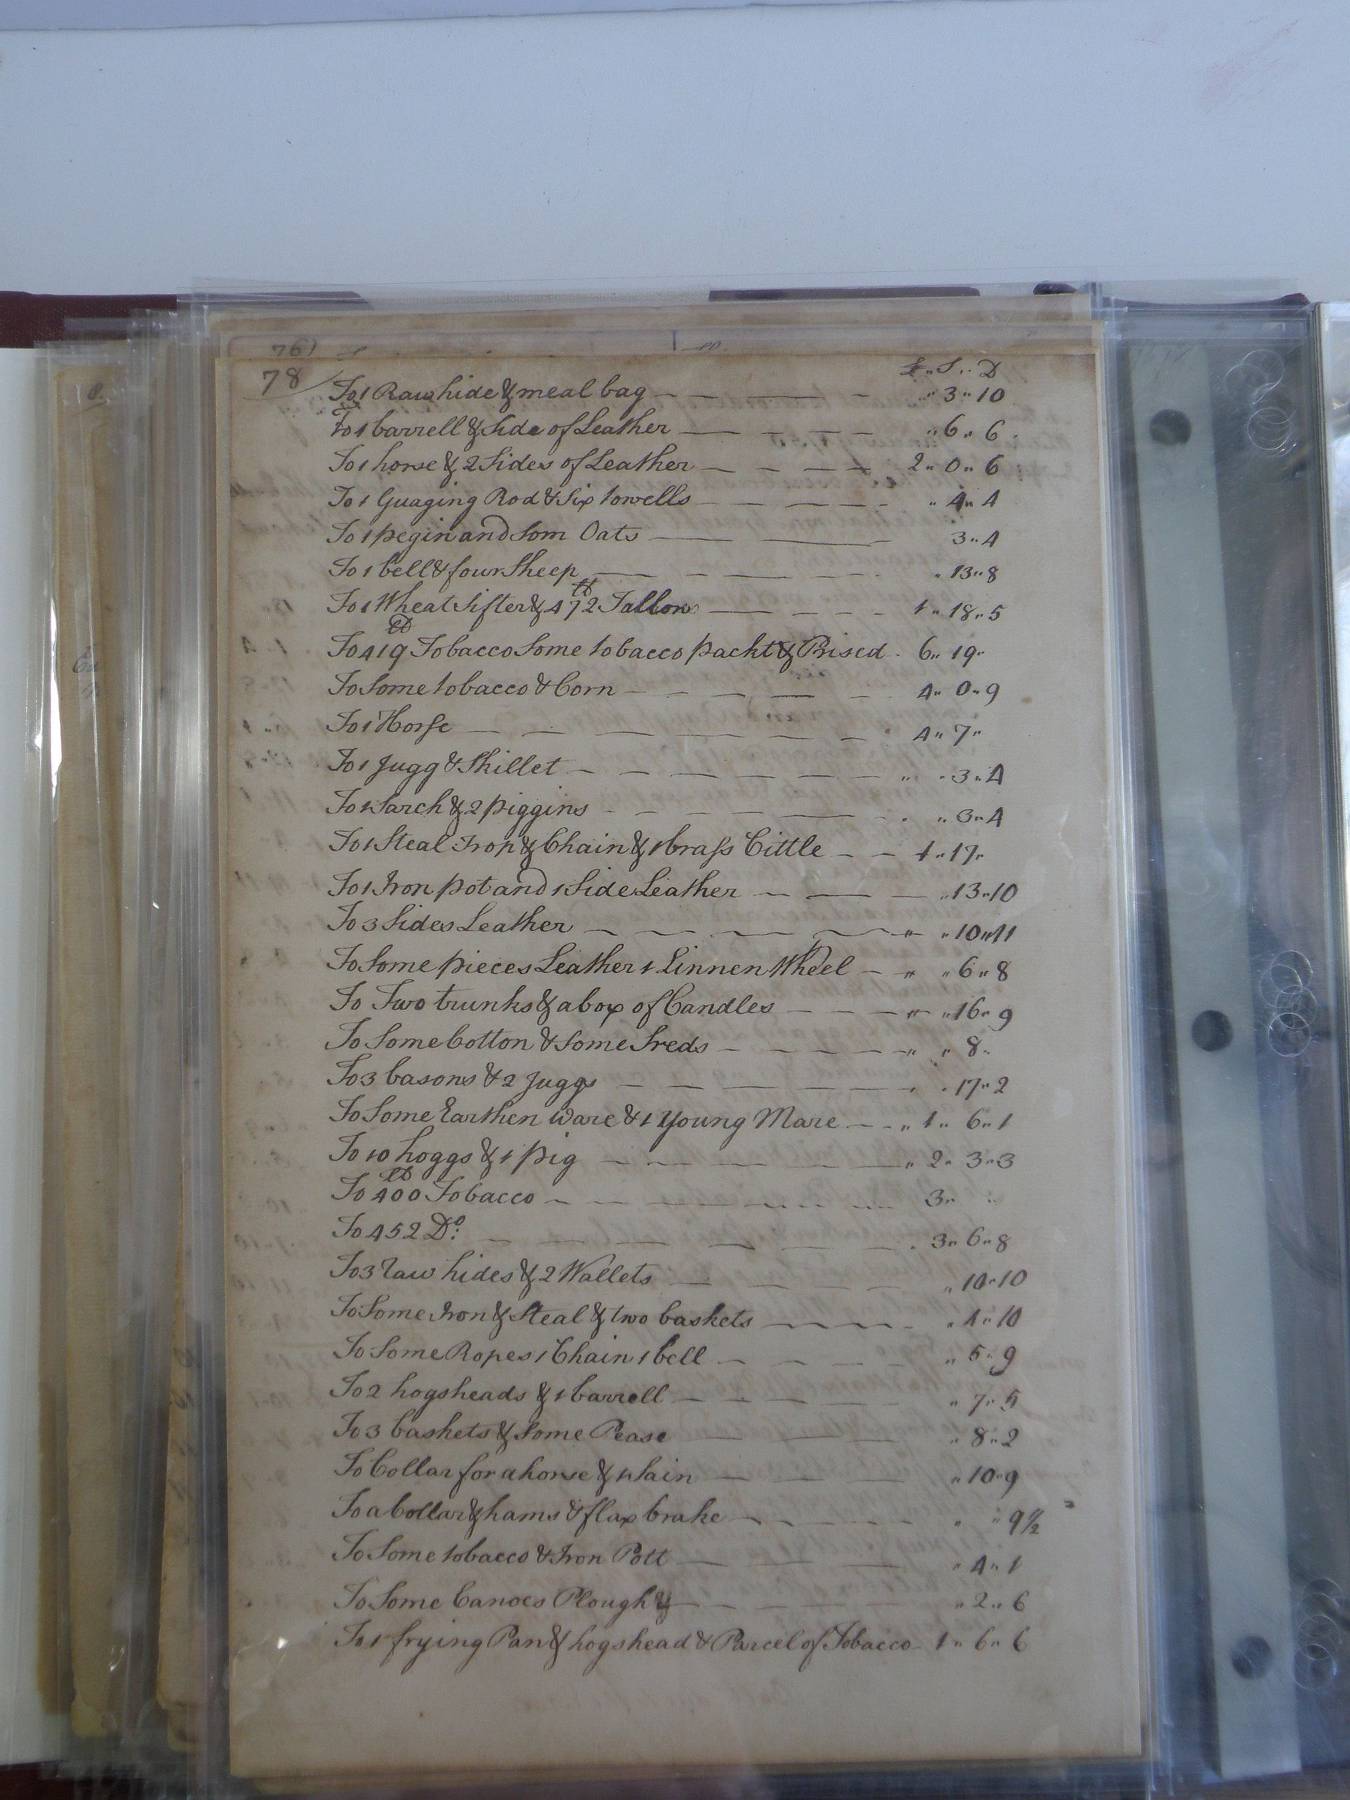 76)
78
£ „ S „ D
To 1 Rawhide & meal bag „ 3 „ 10
To 1 barrell & Side of Leather „ 6 „ 6
To 1 horse & 2 Sides of Leather 2 „ 0 „ 6
To 1 Guaging Rod & Six towells „ 4 „ 4
To 1 pegin and Som Oats 3 „ 4
To 1 bell & four Sheep „ 13 „ 8
To 1 Wheat Sifter & 472 lb Tallow 1 „ 18 „ 5
To 419 lb Tobacco Some tobacco packt & Prised 6 „ 19 „
To Some tobacco & Corn 4 „ 0 „ 9
To 1 Horse 4 „ 7 „
To 1 Jugg & Skillet „ „ 3 „ 4
To 1 Sarch & 2 piggins „ 3 „ 4
To 1 Steal Iron & Chain & 1 brass Cittle 1 „ 17 „
To 1 Iron pot and 1 Side Leather „ 13 „ 10
To 3 Sides Leather „ „ 10 „ 11
To Some pieces Leather 1 Linnen Wheel „ „ 6 „ 8
To Two trunks & a box of Candles „ „ 16 „ 9
To Some Cotton & Some Sreds „ „ 8 „
To 3 basons & 2 Juggs „ 17 „ 2
To Some Earthen ware & 1 Young Mare „ 1 „ 6 „ 1
To 10 hoggs & 1 pig „ 2 „ 3 „ 3
To 400 lb Tobacco 3 „ „
To 452 Do: 3 „ 6 „ 8
To 3 raw hides & 2 Wallets „ 10 „ 10
To Some Iron & Steal & two baskets „ 4 „ 10
To Some Ropes 1 Chain 1 bell „ 5 „ 9
To 2 hogsheads & 1 barrell „ 7 „ 5
To 3 baskets & Some Pease „ 8 „ 2
To Collar for a horse & 10 „ 9
To a Collar & hams & flax brake „ „ 9 1/2
To Some tobacco & Iron Pott „ 4 „ 1
To Some Canoes Plough & „ 2 „ 6
To 1 frying Pan & hogshead & Parcel of Tobacco 1 „ 6 „ 6